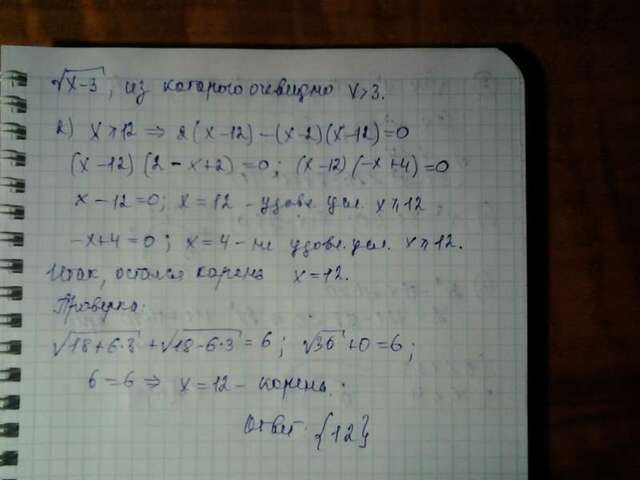 √(x-3), из которого очевидно x>3.
2) x⩾12 ⇒ 2(x-12)-(x-2)(x-12)=0
(x-12)(2-x+2)=0; (x-12)(-x+4)=0
x-12=0; x=12 - удовл. усл. x⩾12
-x+4=0; x=4 - не удовл. усл. x⩾12.
Итак, остался корень x=12.
Проверка:
√(18+6·3)+√(18-6·3)=6; √36+0=6;
6=6 ⇒ x=12 - корень.
Ответ: {12}